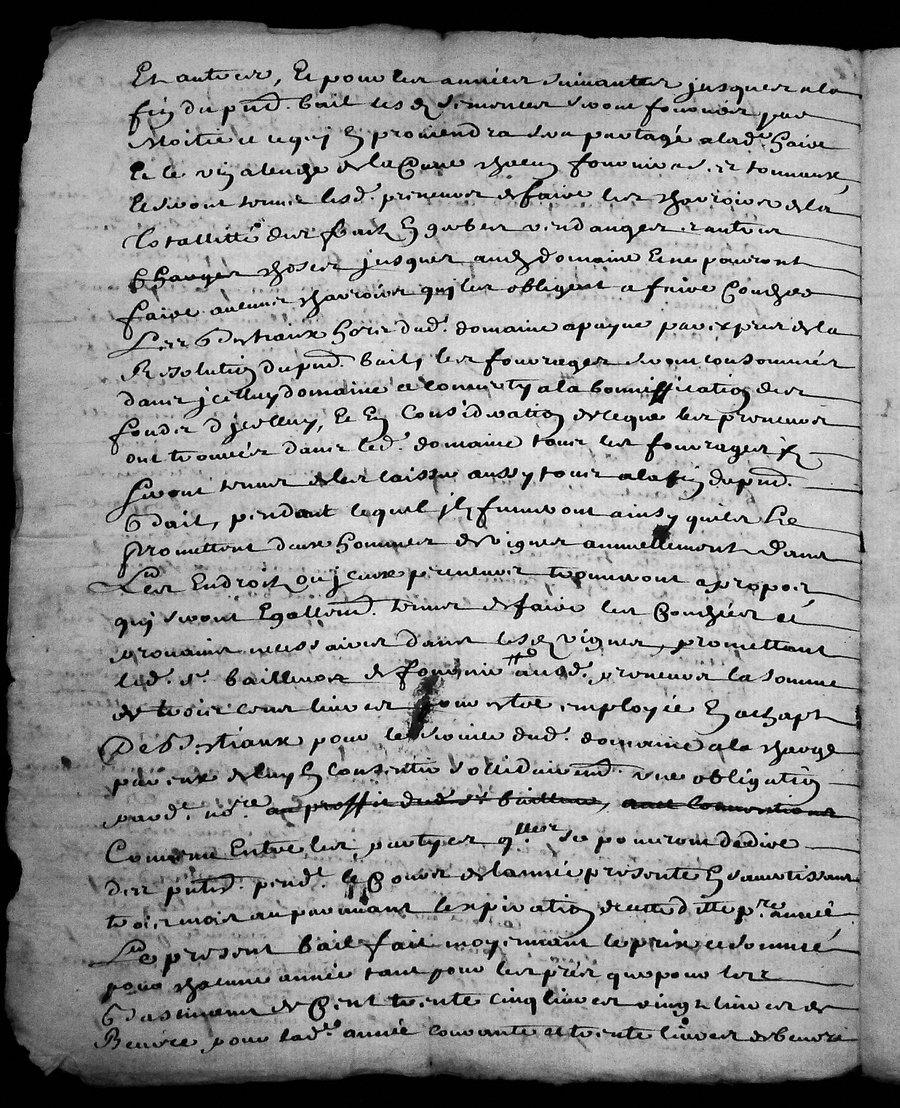 Et autres, Et pour les années suivantes jusques a la
fin du pnt. bail lesd. semences seront fournies par
Moitié ce qui En proviendra sera partagé a lad. haire
Et le vin a lenche de la Cuve chacun fournira ses tonneaux
Et seront tenus lesd. preneurs de faire les charrois de la
totallitté des fruits En gerbes vendanges et autres
Charges choses jusques aud. domaine Et ne pourront
faire aucuns charrois qui les obligent a faire Coucher
Les Bestiaux hors dud. domaine a payne par expres de la
Resolution du pnt. bail, les fourrages seront consommés
dans jcelluy domaine et convertys a la bonniffication des
fonds d'jcelluy, Et En Considération de ce que les preneurs
ont trouvés dans led. domaine tous les fourrages ils
seront tenus de les laisser aussy tous a la fin du pnt.
Bail, pendant lequel jls fumeront ainsy quils Le
promettent deux hommes de vignes annuellement dans
Les Endroits ou jceux preneurs trouveront a propos
qui seront Egallemt. tenus de faire les Couchées et
provains necessaires dans lesd. vignes, promettant
led. sr. bailleur de fournir ausd. preneurs la somme
de trois cens livres pour estre employée En achapt
De Bestiaux pour le service dud. domaine a la charge
par eux de luy En Consentir sollidairemt. une obligation
pard. nore. au proffit dud. sr. bailleur, aux Conventions
Convenu Entre les partyes qlles. se pourront dédire
des pntes. pendt. le Cours de lannée présente En s'avertissant
trois mois auparavant lexpiration de cette ditte pre. année
Le present bail fait moyennant le prix et somme
pour chacune année tant pour les prés que pour les
Bassinens de Cent trente cinq livres vingt livres de
Beurre pour lade. année courante et trente livres de beurre